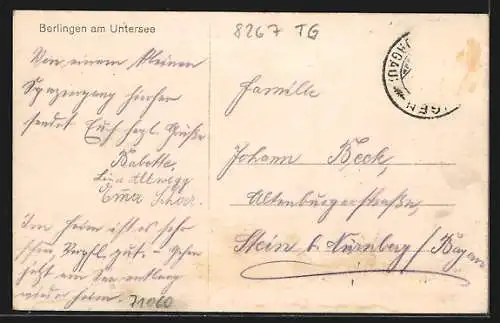 Berlingen am Untersee
8267 TG
Von einem kleinen
Spaziergang hierher
sendet Euch hzgl. Grüße
Babette,
Lina Altwegg
Emma Schär.
Im Heim ist es sehr
schön, Verpfl. gut. - Gehen
jetzt am See entlang
wieder heim.
71060
(THURGAU)
NGEN
Familie
Johann Beck,
Altenburgerstraße,
Stein b. Nürnberg / Bayern